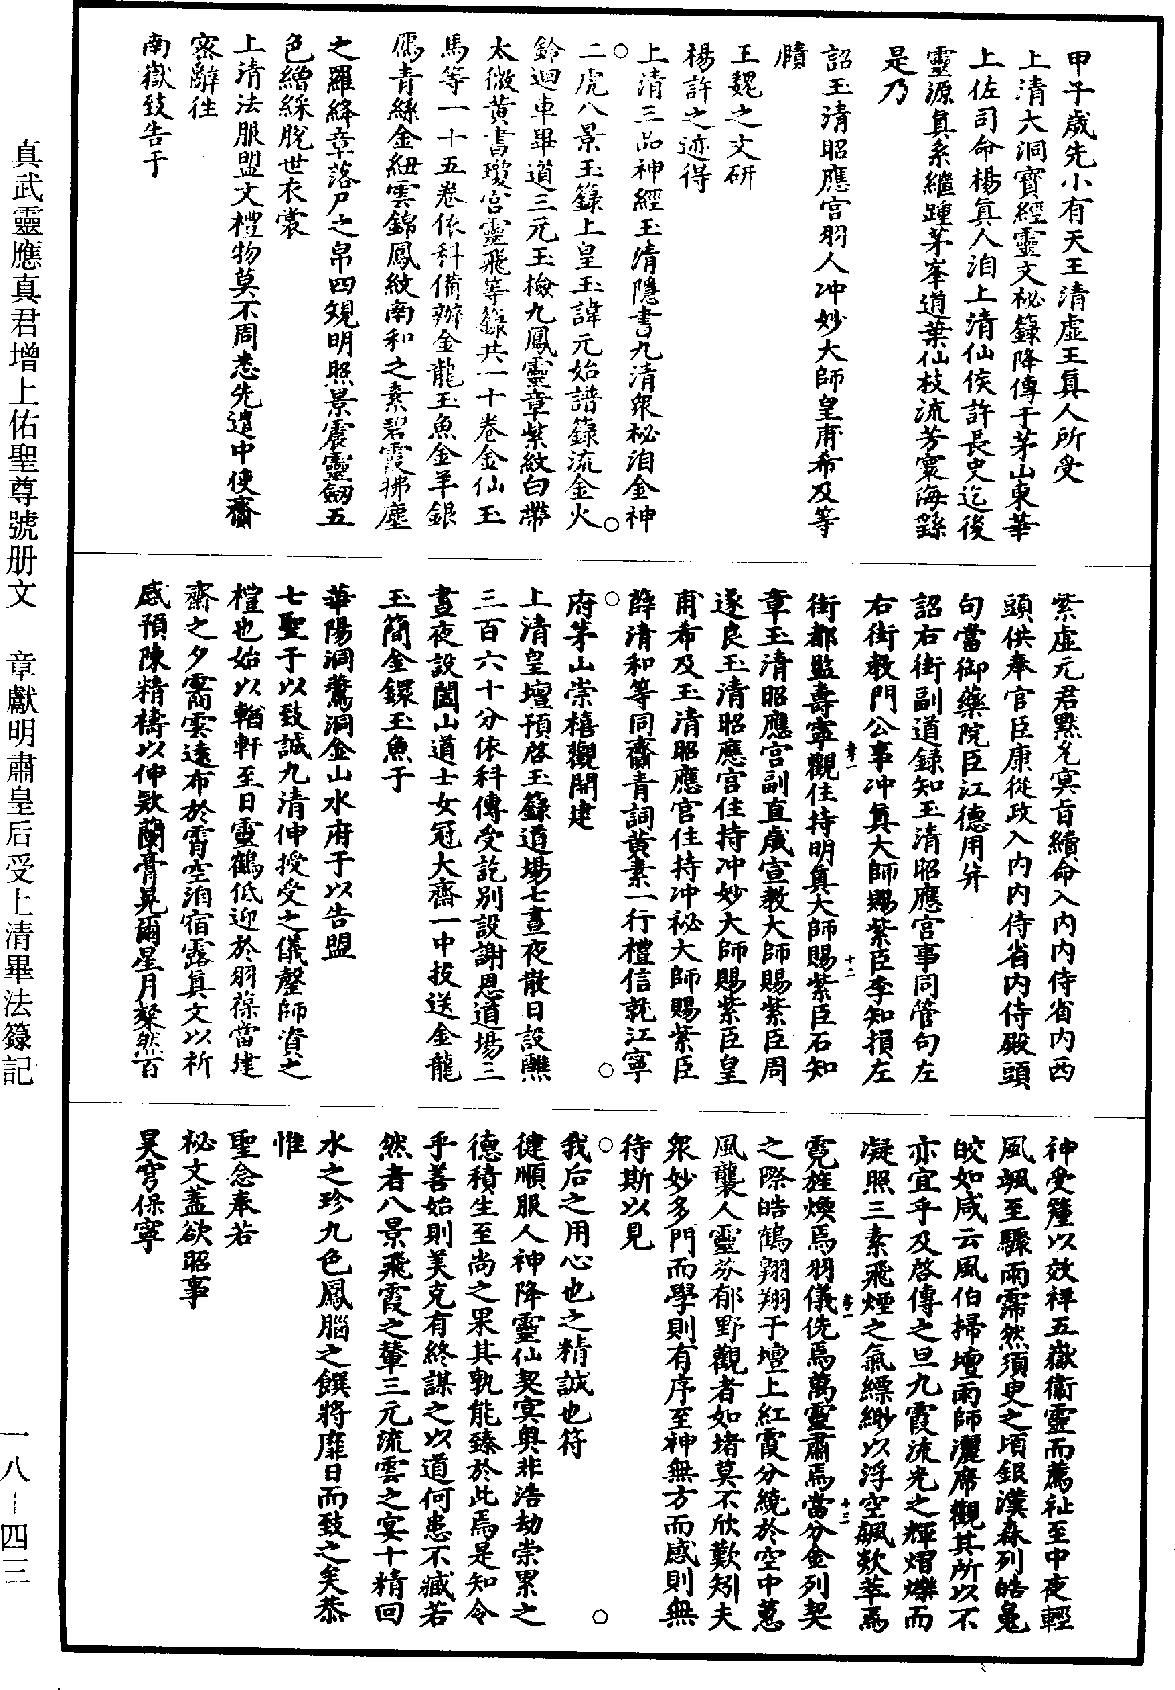 甲子歲先小有天王清虛王真人所受
上清大洞寶經靈文祕籙降傳于茅山東華
上佐司命楊真人洎上清仙侯許長史迄後
靈源真系繼踵茅峯道葉仙枝流芳寰海繇
是乃
詔玉清昭應宮羽人沖妙大師皇甫希及等
賾
王魏之文研
楊許之迹得
上清三品神經玉清隱書九清衆祕洎金神
二虎八景玉籙上皇玉諱元始譜籙流金火
鈴迴車畢道三元玉檢九鳳靈章紫紋白帶
太微黃書瓊宮靈飛等籙共一十卷金仙玉
馬等一十五卷依科備辦金龍玉魚金羊銀
鴈青絲金紐雲錦鳳紋南和之素碧霞拂塵
之羅絳章落尸之帛四規明照景震靈劒五
色繒綵脫世衣裳
上清法服盟文禮物莫不周悉先遣中使齎
密辭往
南嶽致告于
紫虛元君默允冥旨續命入內內侍省內西
頭供奉官臣康從政入內內侍省內侍殿頭
句當御藥院臣江德用并
詔右街副道錄知玉清昭應宮事同管句左
右街教門公事沖真大師賜紫臣李知損左
街都監壽寧觀住持明真大師賜紫臣石知
章玉清昭應宮副直歲宣教大師賜紫臣周
遂良玉清昭應宮住持沖妙大師賜紫臣皇
甫希及玉清昭應宮住持沖祕大師賜紫臣
薛清和等同齎青詞黃素一行禮信就江寧
府茅山崇禧觀開建
上清皇壇預啓玉籙道場七晝夜散日設醮
三百六十分依科傳受訖別設謝恩道場三
晝夜設闔山道士女冠大齋一中投送金龍
玉簡金鐶玉魚于
華陽洞鶩洞金山水府于以告盟
七聖于以致誠九清伸授受之儀罄師資之
禮也始以輶軒至日靈鶴低迎於羽葆當建
齋之夕矞雲遠布於霄空洎宿露真文以祈
感預陳精禱以伸欵蘭膏晃爾星月粲然百
神受釐以效祥五嶽衛靈而薦祉至中夜輕
風颯至驟雨霈然須臾之頃銀漢森列皓魄
皎如咸云風伯掃壇雨師灑席觀其所以不
亦宜乎及啓傳之旦九霞流光之輝熠爍而
凝照三素飛煙之氣縹緲以浮空飆欻萃焉
霓旌煥焉羽儀侁焉萬靈肅焉當分金列契
之際皓鶴翔翔于壇上紅霞分繞於空中蕙
風襲人靈芬郁野觀者如堵莫不欣歎矧夫
衆妙多門而學則有序至神無方而感則無
待斯以見
我后之用心也之精誠也符
健順服人神降靈仙契寘奧非浩劫崇累之
德積生至尚之果其孰能臻於此焉是知令
乎善始則美克有終謀之以道何患不臧若
然者八景飛霞之輦三元流雲之宴十精回
水之珍九色鳳腦之饌將靡日而致之矣恭
惟
聖念奉若
祕文蓋欲昭事
昊穹保寧
真武靈應真君增上佑聖尊號册文　章獻明肅皇后受上清畢法籙記
一八－四三